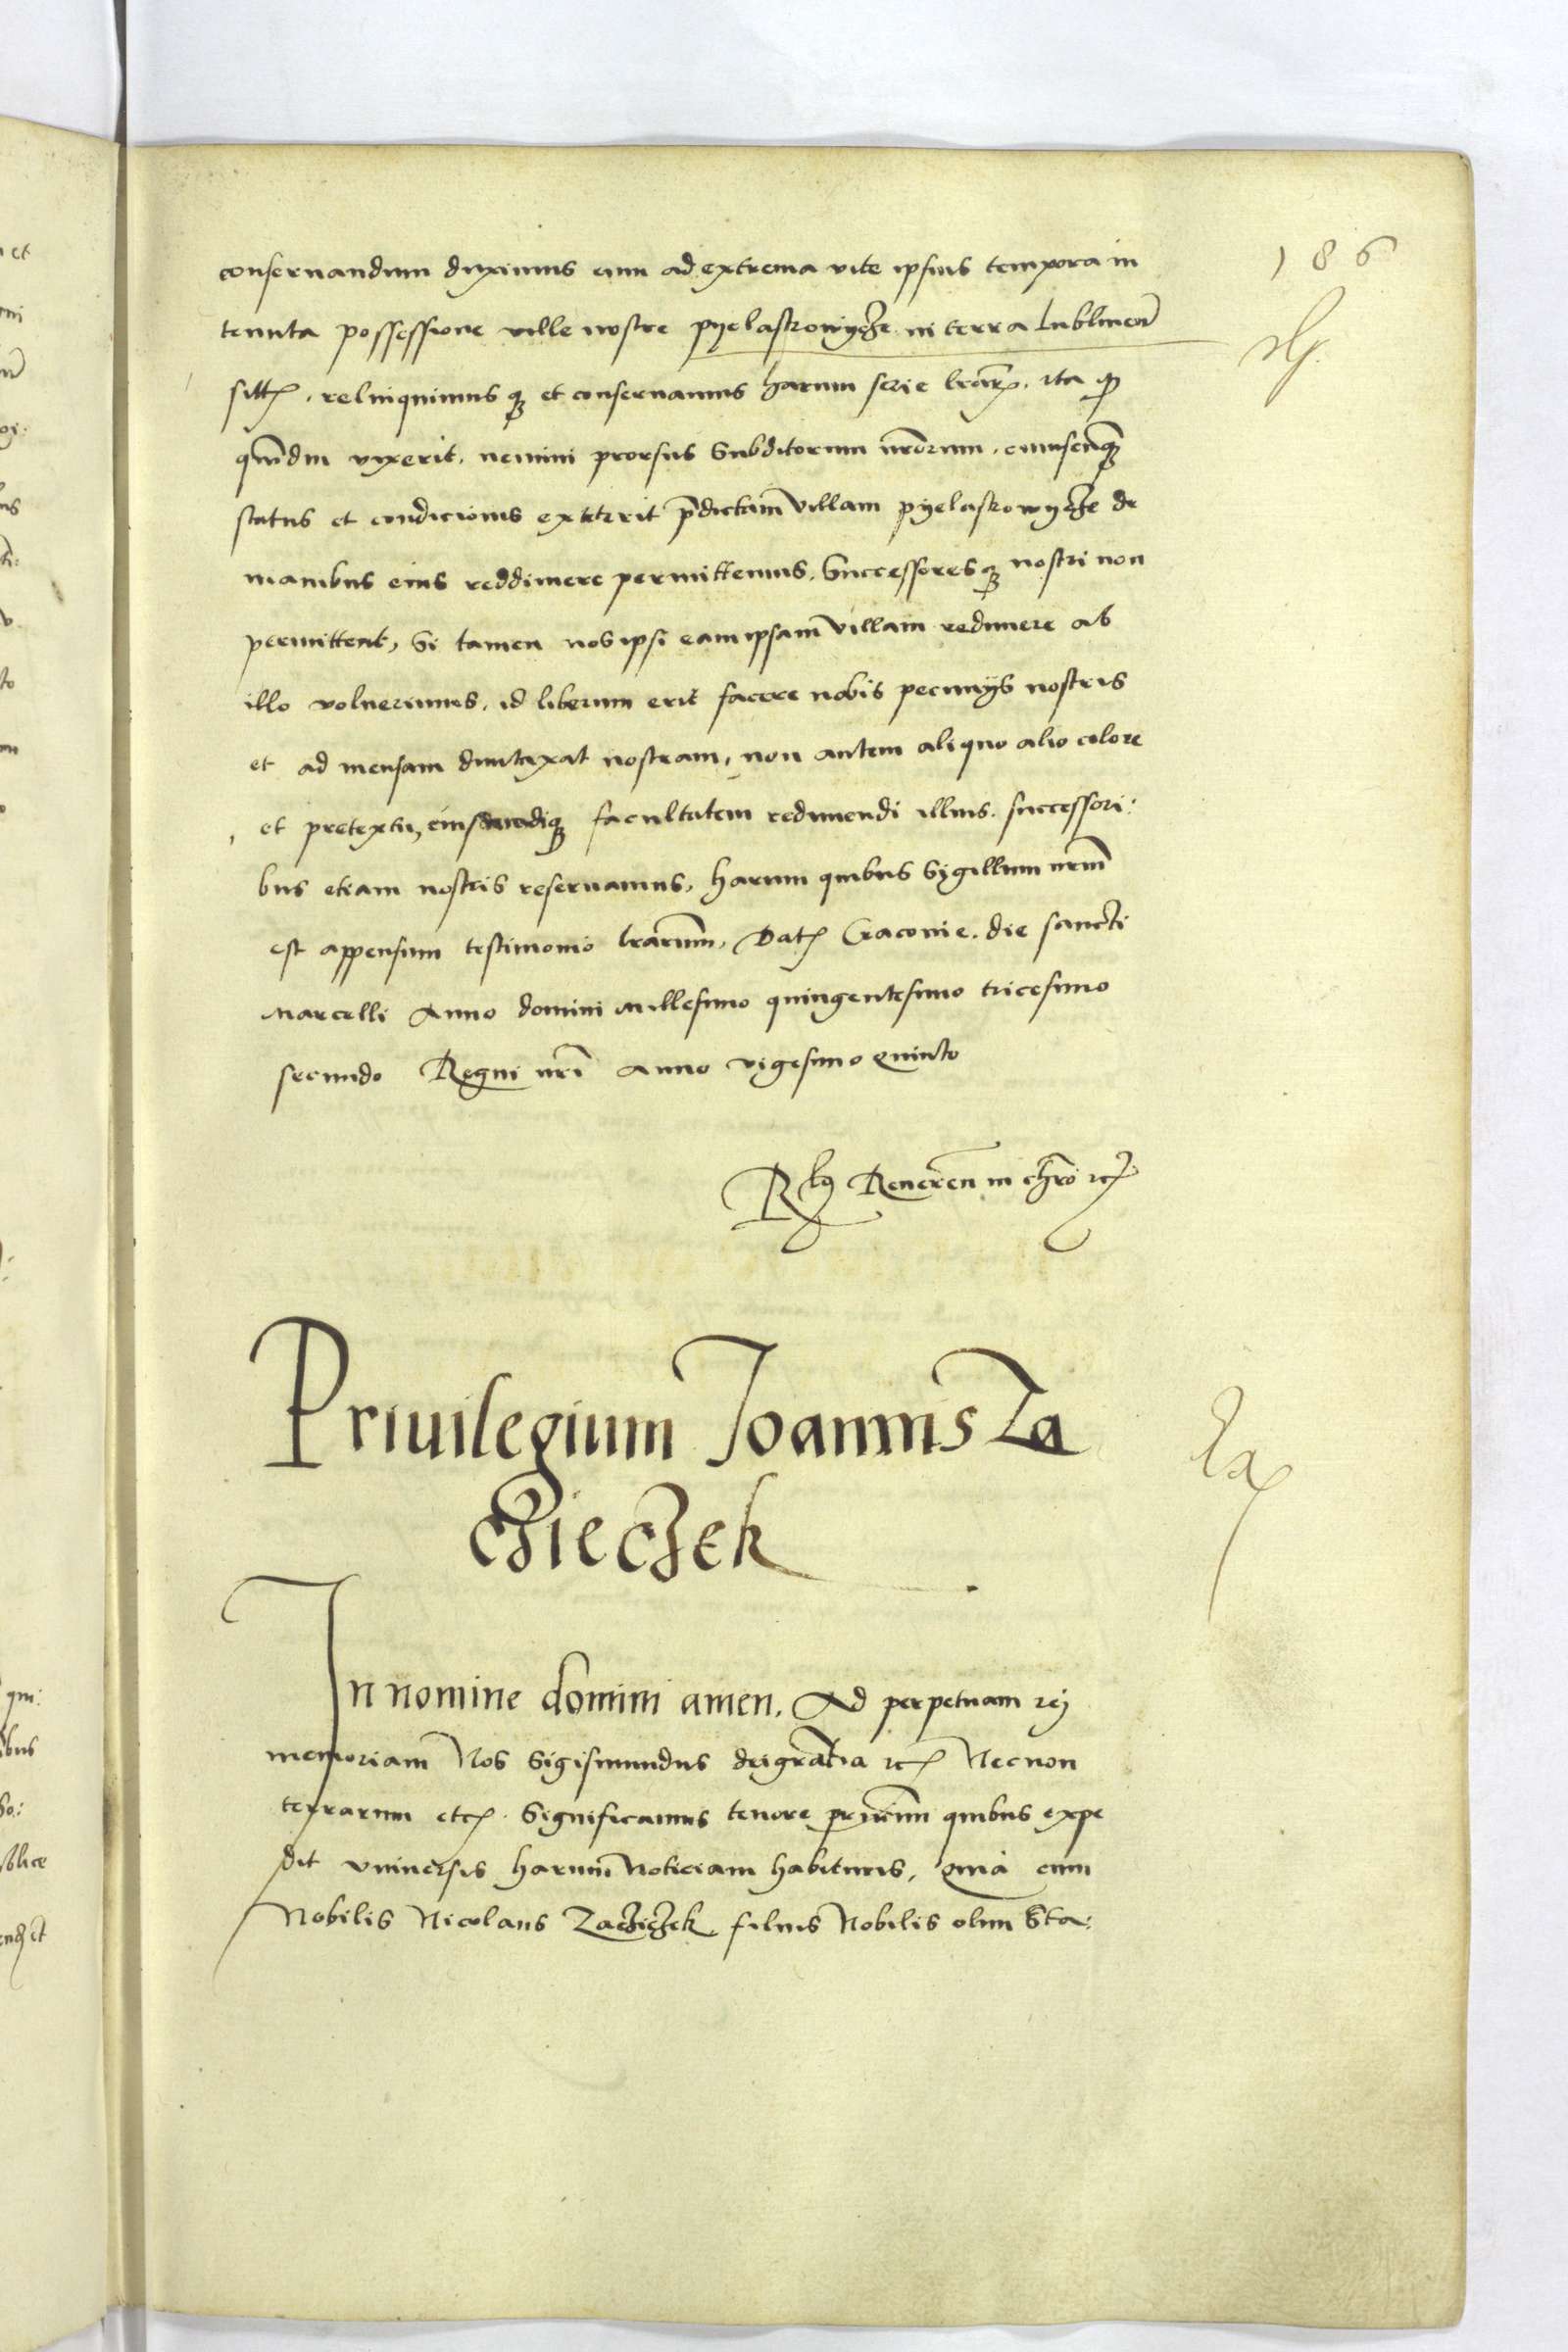 186
conseruandum duximus eum ad extrema vite ipsius tempora in
tenuta possessione ville nostre pyelaskowycze in terra Lublinen̄
sitt. relinquimusq3 et conseruamus harum serie lrar̄. ita qp
qm̄diu vixerit. nemini prorsus Subditorum nr̄orum. cuiuscunq3
status et condicionis extiterit p̄dictam villam pyelaskowycze de
manibus eius reddimere permittemus. Successoresq3 nostri non
permittent, Si tamen nos ipsi eam ipsam villam redimere ab
illo voluerimus. id liberum erit facere nobis pecunijs nostris
et ad mensam duntaxat nostram, non autem aliquo alio colore
et pretextu, eiusmodiq3 facultatem redimendi illius. successori:
bus etiam nostris reseruamus, harum quibus Sigillum nr̄m
est appensum testimonio lrarum̄, Dat Cracouie. die sancti
Marcelli Anno domini millesimo quingentesimo tricesimo
secundo Regni nr̄i anno vigesimo quinto
Reueren in chr̄o etc
Priuilegium Joannis Za
cziecZek
In nomine domini amen. Ad perpetuam rej
memoriam Nos Sigismundus dei gratia etc Necnon
terrarum etc. Significamus tenore pn̄cium quibus expe
dit vniuersis harum noticiam habituris, quia cum
Nobilis Nicolaus Zacziczek filius Nobilis olim Sta: